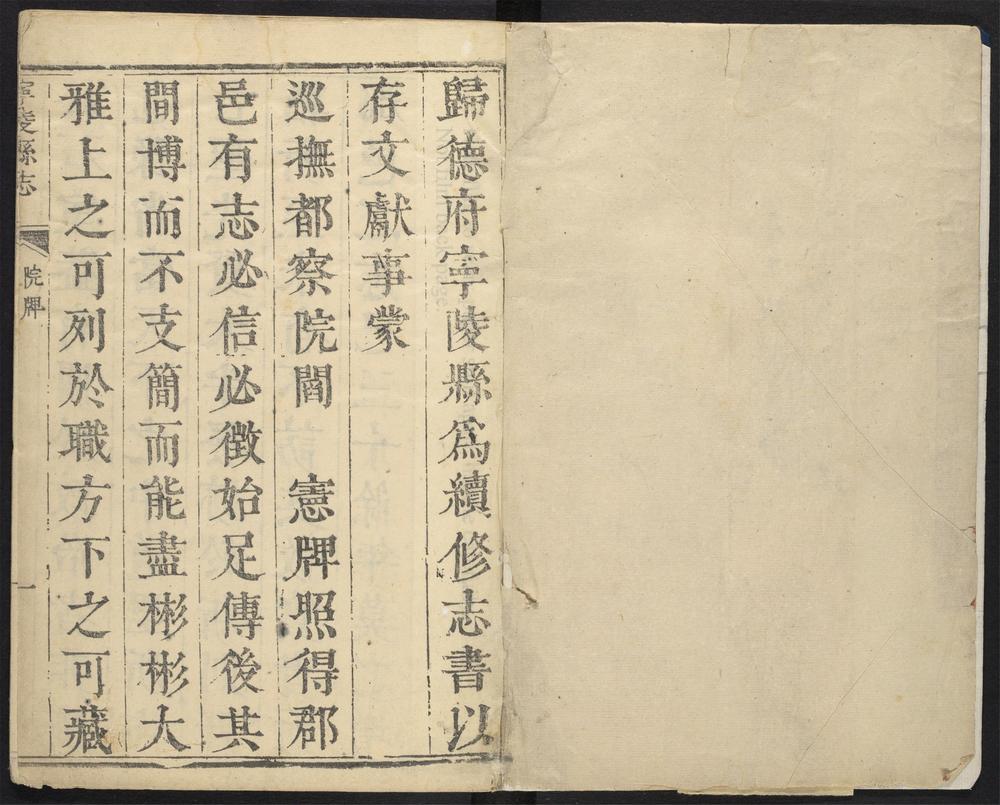 歸德府寧陵縣爲續修志書以
存文獻事蒙
巡撫都察院閻　憲牌照得郡
邑有志必信必徵始足傳後其
間博而不支簡而能盡彬彬大
雅上之可列於職方下之可藏
寧陵縣志
院牌
一